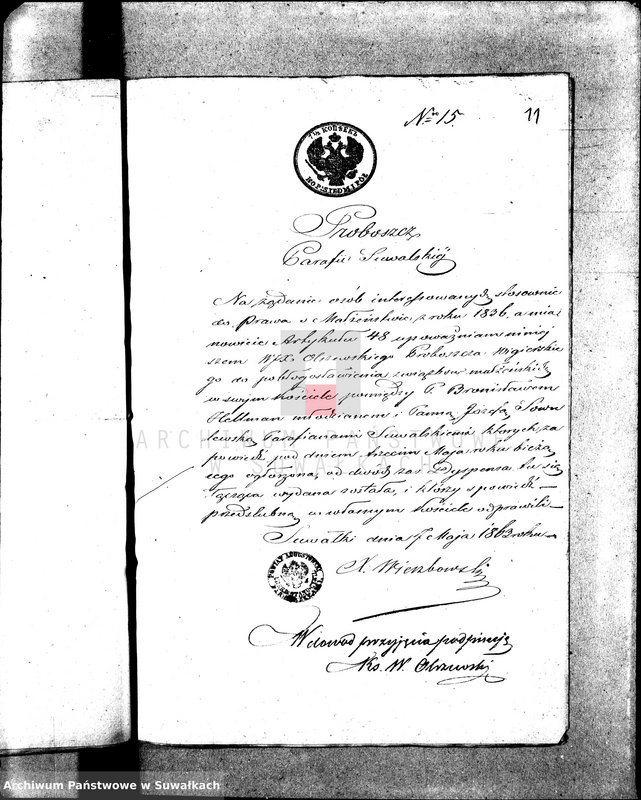 Nº 15.
11
7½ КОПѢЕКЪ
KOP. SIEDM I PÓŁ
Proboszcz
Parafii Suwalskiéj
Na żądanie osób interessowanych stosownie
do Prawa o Małżeństwie z roku 1836, a mia
nowicie Artykułu 48 upoważniam niniej
szem WJX. Olszewskiego Proboszcza Wigierskie
go do pobłogosławienia związków małżeńskich
w swym kościele pomiędzy P. Bronisławem
Hellman młodzianem i Panną Józefą
lewską Parafianami Suwalskiemi których za
powiedź pod dniem trzecim Maja roku bieżą
cego ogłoszona, od dwóch zaś Dyspensa
wydana została, i którzy spowiedź
przedślubną w własnym kościele odprawili
Suwałki dnia Maja 1863 roku
X. Wierzbowski
W dowód przyjęcia podpisuję
Ks. W. Olszewski
ARCHIWUM PAŃSTWOWE
W SUWAŁKACH
Archiwum Państwowe w Suwałkach